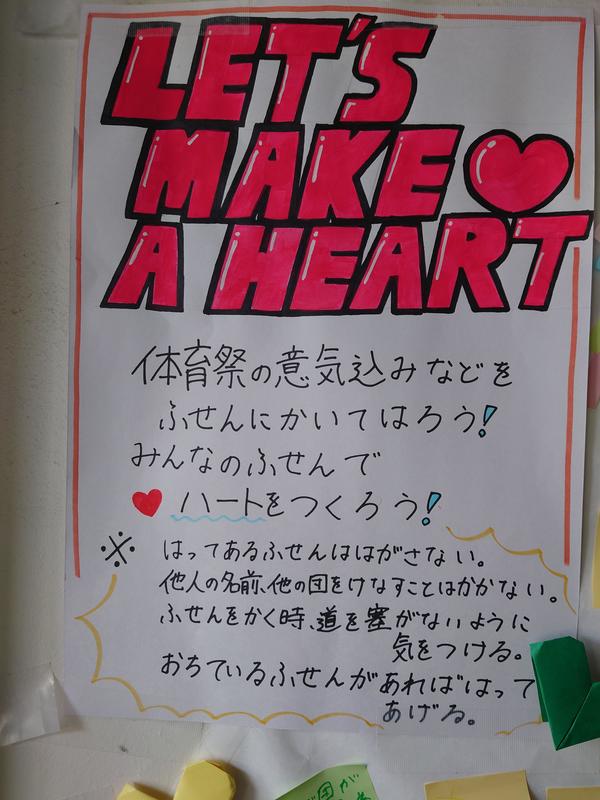 LET'S
MAKE
A HEART
体育祭の意気込みなどを
ふせんにかいてはろう!
みんなのふせんで
ハートをつくろう!
※ はってあるふせんははがさない。
他人の名前、他の団をけなすことはかかない。
ふせんをかく時、道を塞がないように
気をつける。
おちているふせんがあればはって
あげる。
団が